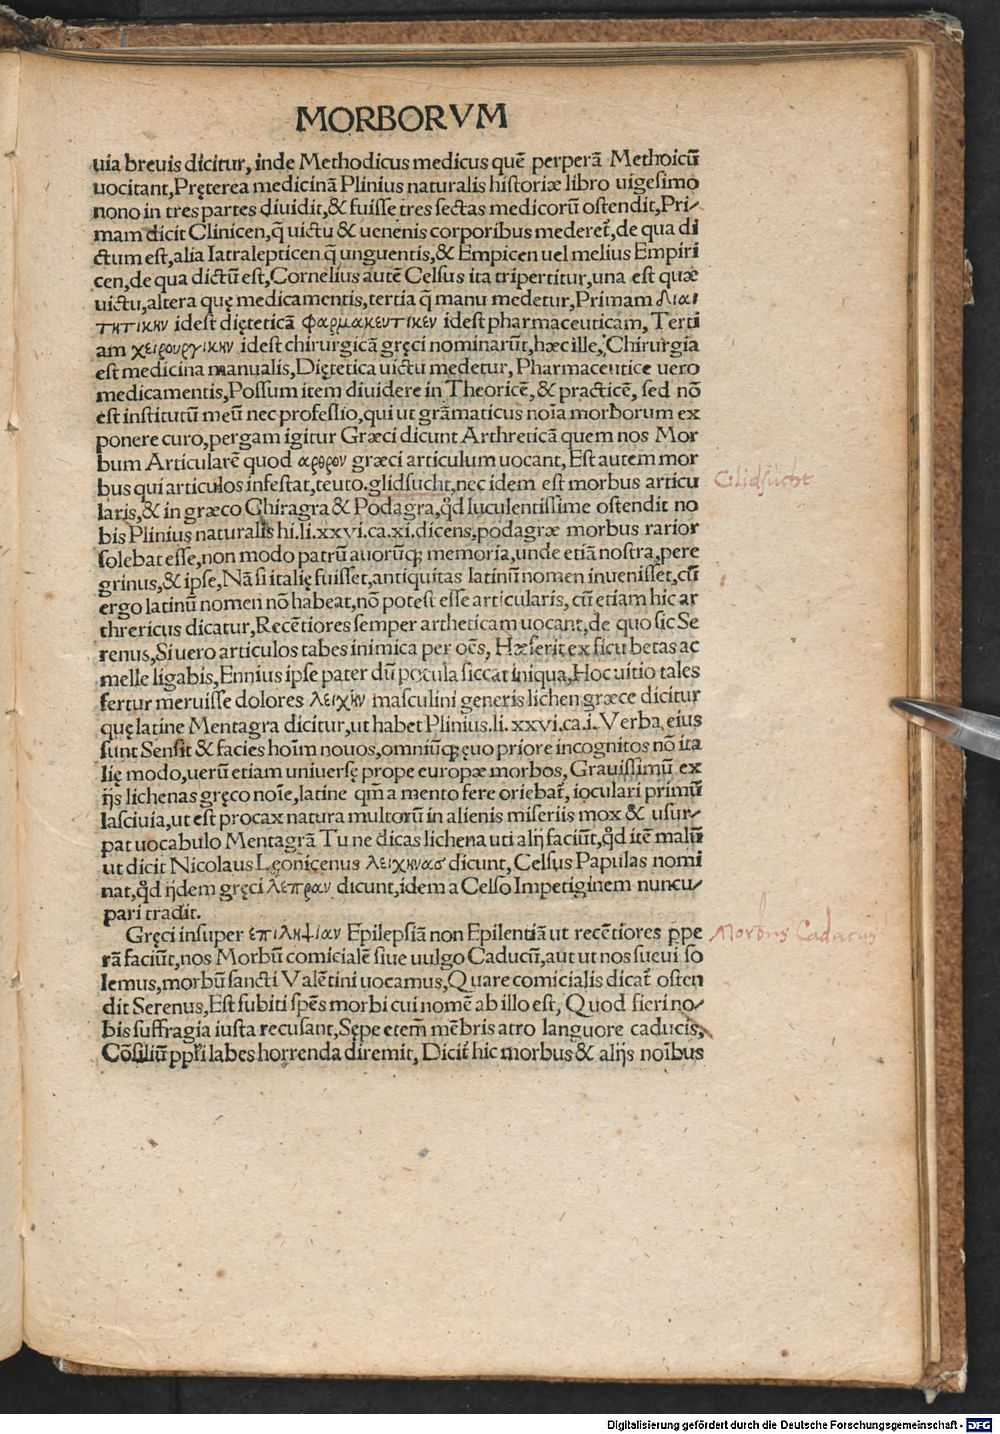 MORBORVM
uia breuis dicitur, inde Methodicus medicus quē perperā Methoicū
uocitant, Pręterea medicinā Plinius naturalis historiæ libro uigesimo
nono in tres partes diuidit, & fuisse tres sectas medicorū ostendit, Pri/
mam dicit Clinicen, q̄ uictu & uenenis corporibus mederet̄, de qua di
ctum est, alia Iatralepticen q̄ unguentis, & Empicen uel melius Empiri
cen, de qua dictū est, Cornelius autē Celsus ita tripertitur, una est quæ
uictu, altera quę medicamentis, tertia q̄ manu medetur, Primam Διαι
τητικην idest dięteticā φαρμακευτικεν idest pharmaceuticam, Terti
am χειρουργικην idest chirurgicā gręci nominarūt, hæc ille, Chirurgia
est medicina manualis, Dięteticauictu medetur, Pharmaceutice uero
medicamentis, Possum item diuidere in Theoricē, & practicē, sed nō
est institutū meū nec professio, qui ut grāmaticus noīa morborum ex
ponere curo, pergam igitur Græci dicunt Arthreticā quem nos Mor
bum Articularē quod αρθρον græci articulum uocant, Est autem mor
bus qui articulos infestat, teuto. glidsucht, nec idem est morbus articu
laris, & in græco Ghiragra & Podagra, qđ luculentissime ostendit no
bis Plinius naturalis hi. li. xxvi. ca. xi. dicens, podagræ morbus rarior
solebat esse, non modo patrū auorūq; memoria, unde etiā nostra, pere
grinus, & ipse, Nā si italię fuisset, antiquitas latinū nomen inuenisset, cū
ergo latinū nomen nō habeat, nō potest esse articularis, cū etiam hic ar
threricus dicatur, Recētiores semper artheticam uocant, de quo sic Se
renus, Si uero articulos tabes inimica per oēs, Hæserit ex ficu betas ac
melle ligabis, Ennius ipse pater dū pocula siccat iniqua, Hoc uitio tales
fertur meruisse dolores λειχὴν masculini generis lichen græce dicitur
quę latine Mentagra dicitur, ut habet Plinius. li. xxvi. ca. i. Verba eius
sunt Sensit & facies hoīm nouos, omniūq; ęuo priore incognitos nō ita
lię modo, uerū etiam uniuersę prope europæ morbos, Grauissimū ex
ijs lichenas gręco noīe, latine qm̄ a mento fere oriebat̄, ioculari primū
lasciuia, ut est procax natura multorū in alienis miseriis mox & usur/
pat uocabulo Mentagrā Tu ne dicas lichena uti alij faciūt, qđ itē malū
ut dicit Nicolaus Leonicenus λειχηνασ dicunt, Celsus Papulas nomi
nat, qđ ijdem gręci λεπραν dicunt, idem a Celso Impetiginem nuncu/
pari tradit.
Gręci insuper επιληψίαν Epilepsiā non Epilentiā ut recētiores ppe
rā faciūt, nos Morbū comicialē siue uulgo Caducū, aut ut nos sueui so
lemus, morbū sancti Valētini uocamus, Quare comicialis dicat̄ osten
dit Serenus, Est subiti spēs morbi cui nomē ab illo est, Quod fieri no/
bis suffragia iusta recusant, Sępe etem̄ mēbris atro languore caducis,
Cōsiliū ppľi labes horrenda diremit, Dicit̄ hic morbus & alijs noībus
Glidsucht
Morbus Caducus
Digitalisierung gefördert durch die Deutsche Forschungsgemeinschaft - DFG